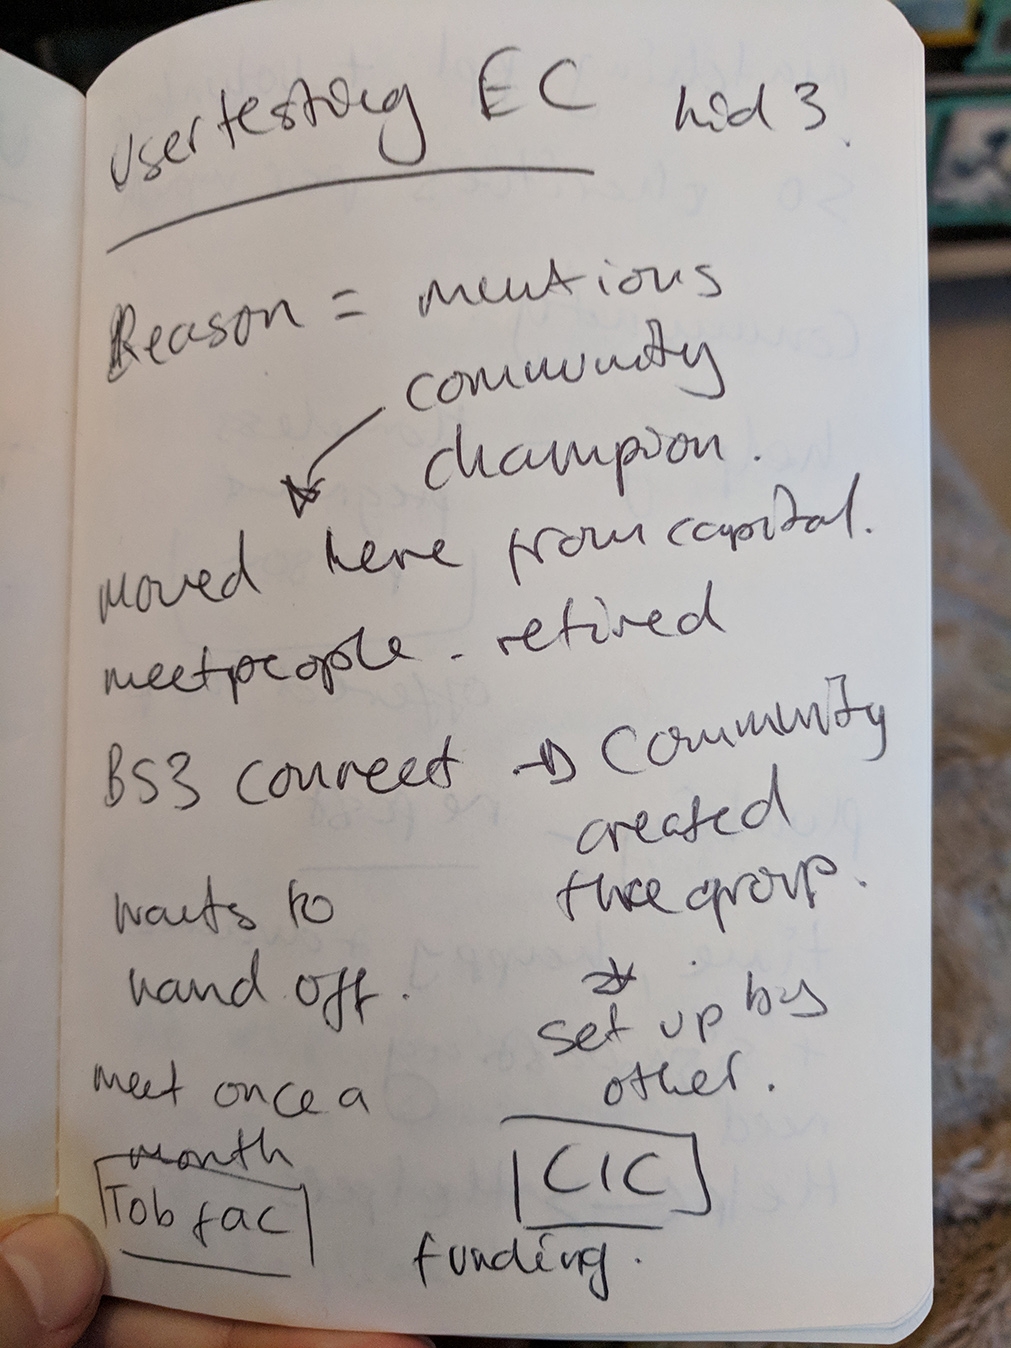 User testing EC
Reason = mentions
community
champion.
moved here from capital.
meet people - retired
BS3 connect → Community
created
the group.
wants to
hand off.
set up by
other.
meet once a
month
Tob fac
CIC
funding.